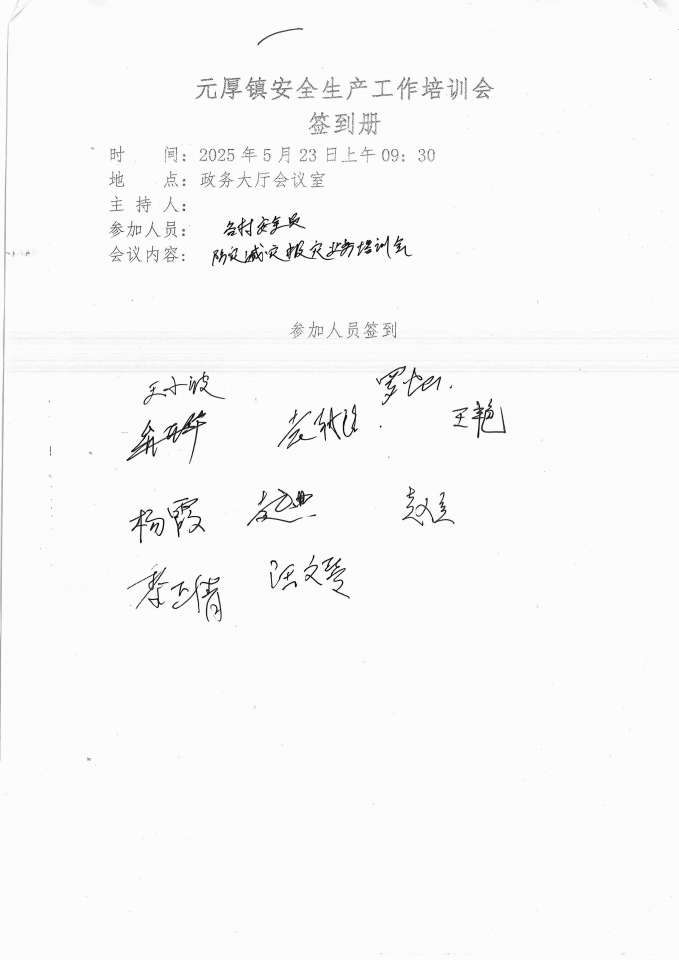 元厚镇安全生产工作培训会
签到册
时 间：2025年5月23日上午09：30
地 点：政务大厅会议室
主 持 人：
参加人员：各村安全员
会议内容：防灾减灾报灾业务培训会
参加人员签到
王小波
王艳
杨霞